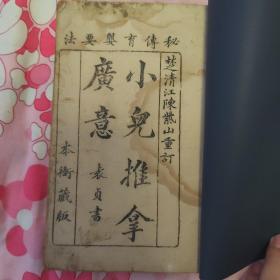 秘傳育嬰要法
楚清江陳紫山重訂
小兒推拿
廣意
袁貞書
本衙藏版